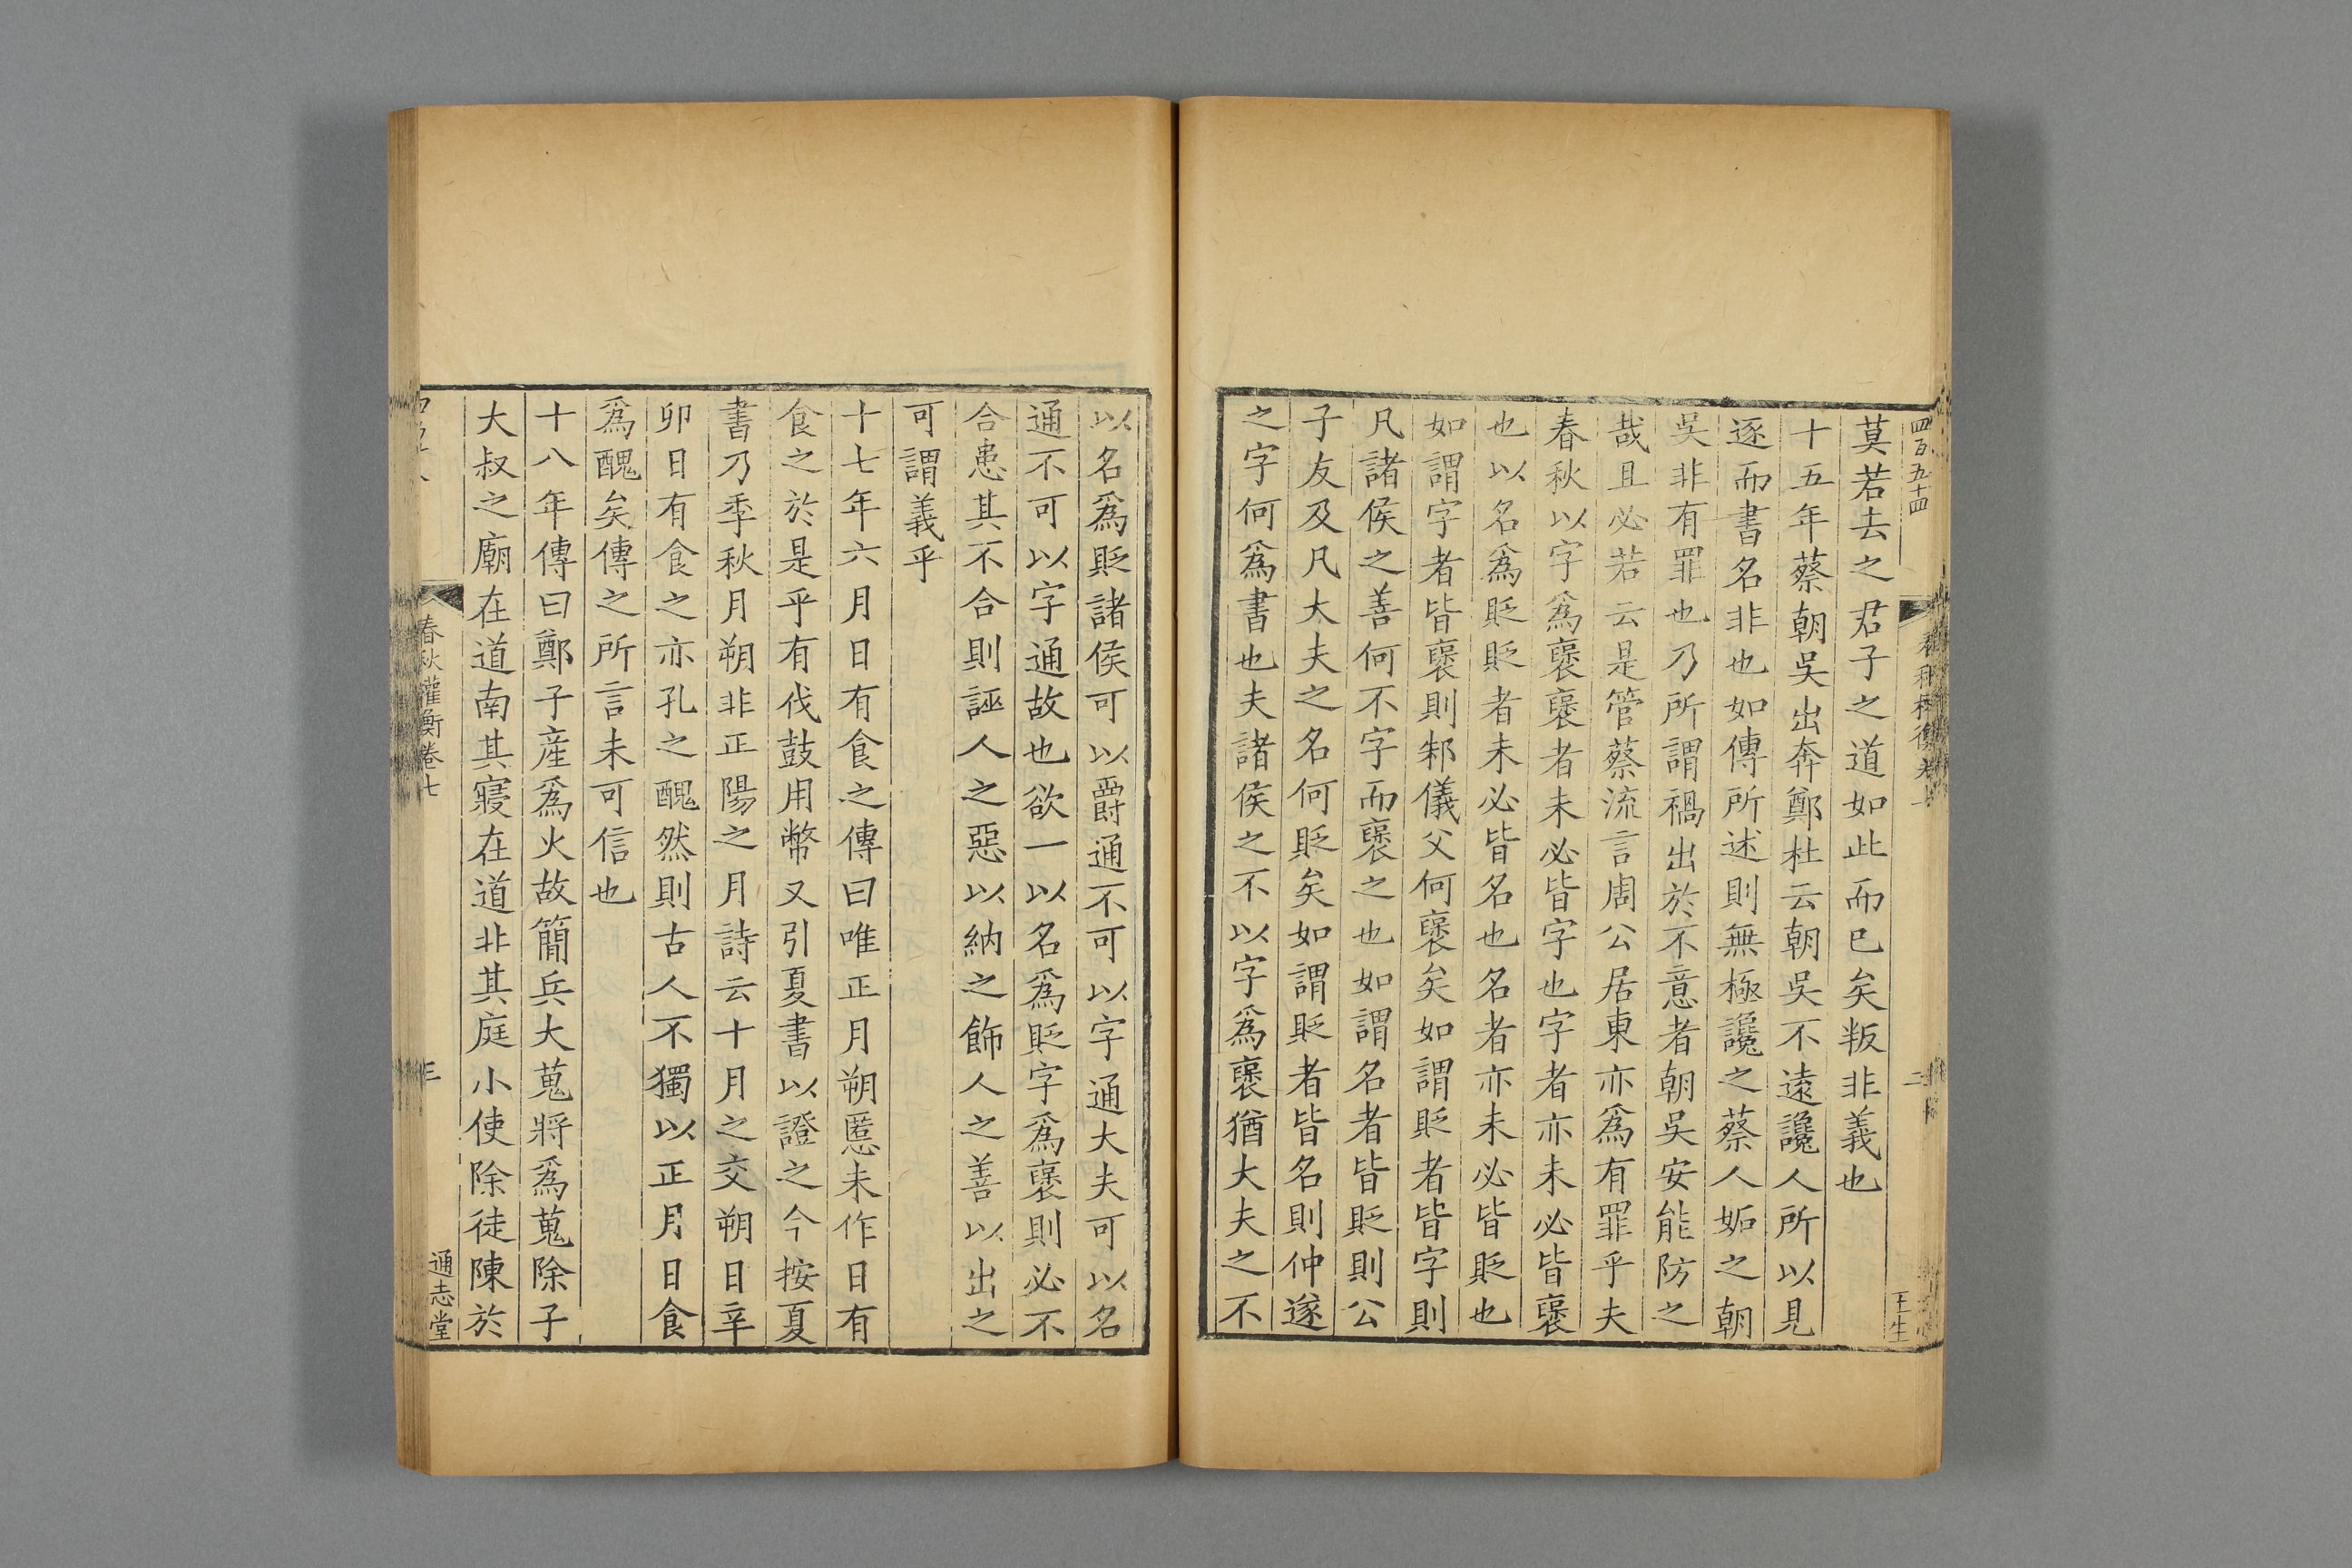 四百五十四
莫若去之君子之道如此而已矣叛非義也
十五年蔡朝吳出奔鄭杜云朝吳不遠讒人所以見
逐而書名非也如傳所述則無極讒之蔡人妬之朝
吳非有罪也乃所謂禍出於不意者朝吳安能防之
哉且必若云是管蔡流言周公居東亦爲有罪乎夫
春秋以字爲襃襃者未必皆字也字者亦未必皆襃
也以名爲貶貶者未必皆名也名者亦未必皆貶也
如謂字者皆襃則邾儀父何襃矣如謂貶者皆字則
凡諸侯之善何不字而襃之也如謂名者皆貶則公
子友及凡大夫之名何貶矣如謂貶者皆名則仲遂
之字何爲書也夫諸侯之不以字爲襃猶大夫之不
王生
以名爲貶諸侯可以爵通不可以字通大夫可以名
通不可以字通故也欲一以名爲貶字爲襃則必不
合患其不合則誣人之惡以納之飾人之善以出之
可謂義乎
十七年六月日有食之傳曰唯正月朔慝未作日有
食之於是乎有伐鼓用幣又引夏書以證之今按夏
書乃季秋月朔非正陽之月詩云十月之交朔日辛
卯日有食之亦孔之醜然則古人不獨以正月日食
爲醜矣傳之所言未可信也
十八年傳曰鄭子產爲火故簡兵大蒐將爲蒐除子
大叔之廟在道南其寢在道北其庭小使除徒陳於
春秋權衡卷七
三
通志堂